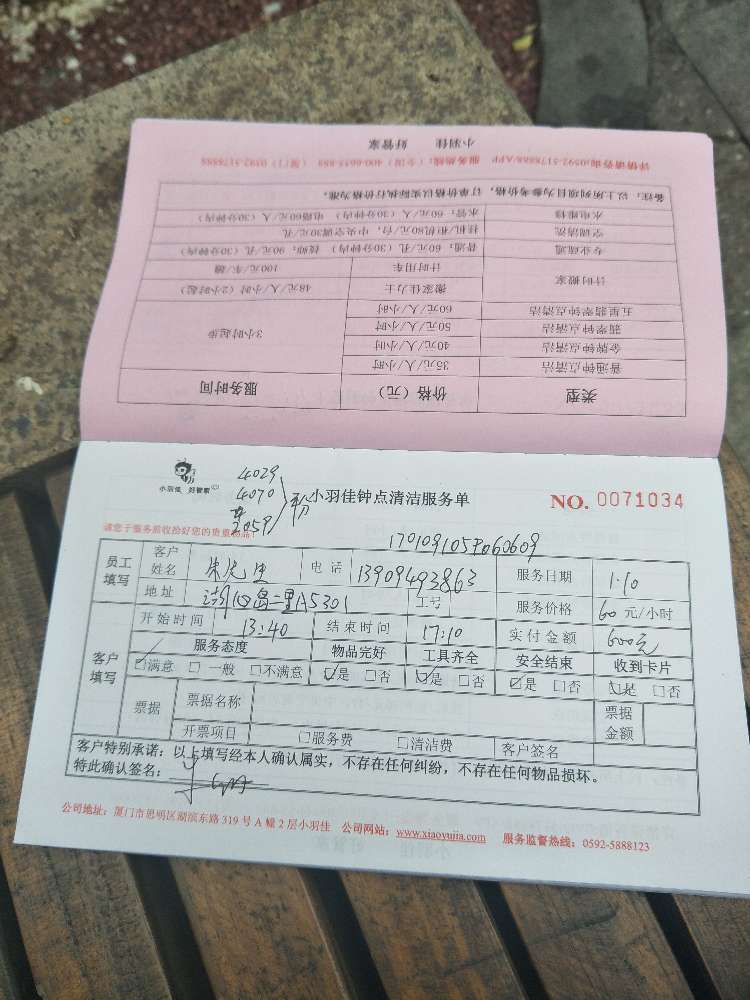 详情请咨询:0592-5178888/APP 服务热线：400-6653-888（全国） 0592-5178886（厦门）
小羽佳 好管家
类型 价格（元） 服务时间
普通钟点清洁 35元/人/小时 3小时起步
金牌钟点清洁 40元/人/小时
翡翠钟点清洁 50元/人/小时
五星翡翠钟点清洁 60元/人/小时
计时搬家 搬家佳力士 48元/人/小时（2小时起）
计时用车 100元/车/趟
专业疏通 普通：60元/孔（30分钟内） 技师：90元/孔（30分钟内）
空调清洗 挂机/柜机80元/台，中央空调30元/孔
水电维修 水管：60元/人（30分钟内） 电路60元/人（30分钟内）
备注：以上所列项目为参考价格，订单价格以实际执行价格为准。
小羽佳 好管家
4029
4070
2059
小羽佳钟点清洁服务单
NO. 0071034
请您于服务前收拾好您的贵重物品！
员工填写 客户姓名 朱先生 电话 13909493863 服务日期 1.10
地址 工号 服务价格 60 元/小时
客户填写 开始时间 13:40 结束时间 17:10 实付金额 600元
服务态度 物品完好 工具齐全 安全结束 收到卡片
☑满意 □一般 □不满意 ☑是 □否 ☑是 □否 ☑是 □否 ☑是 □否
票据 票据名称 票据金额
开票项目 □服务费 □清洁费 客户签名
客户特别承诺：以上填写经本人确认属实，不存在任何纠纷，不存在任何物品损坏。
特此确认签名：
公司地址：厦门市思明区湖滨东路 319 号 A 幢 2 层小羽佳 公司网站：www.xiaoyujia.com 服务监督热线：0592-5888123